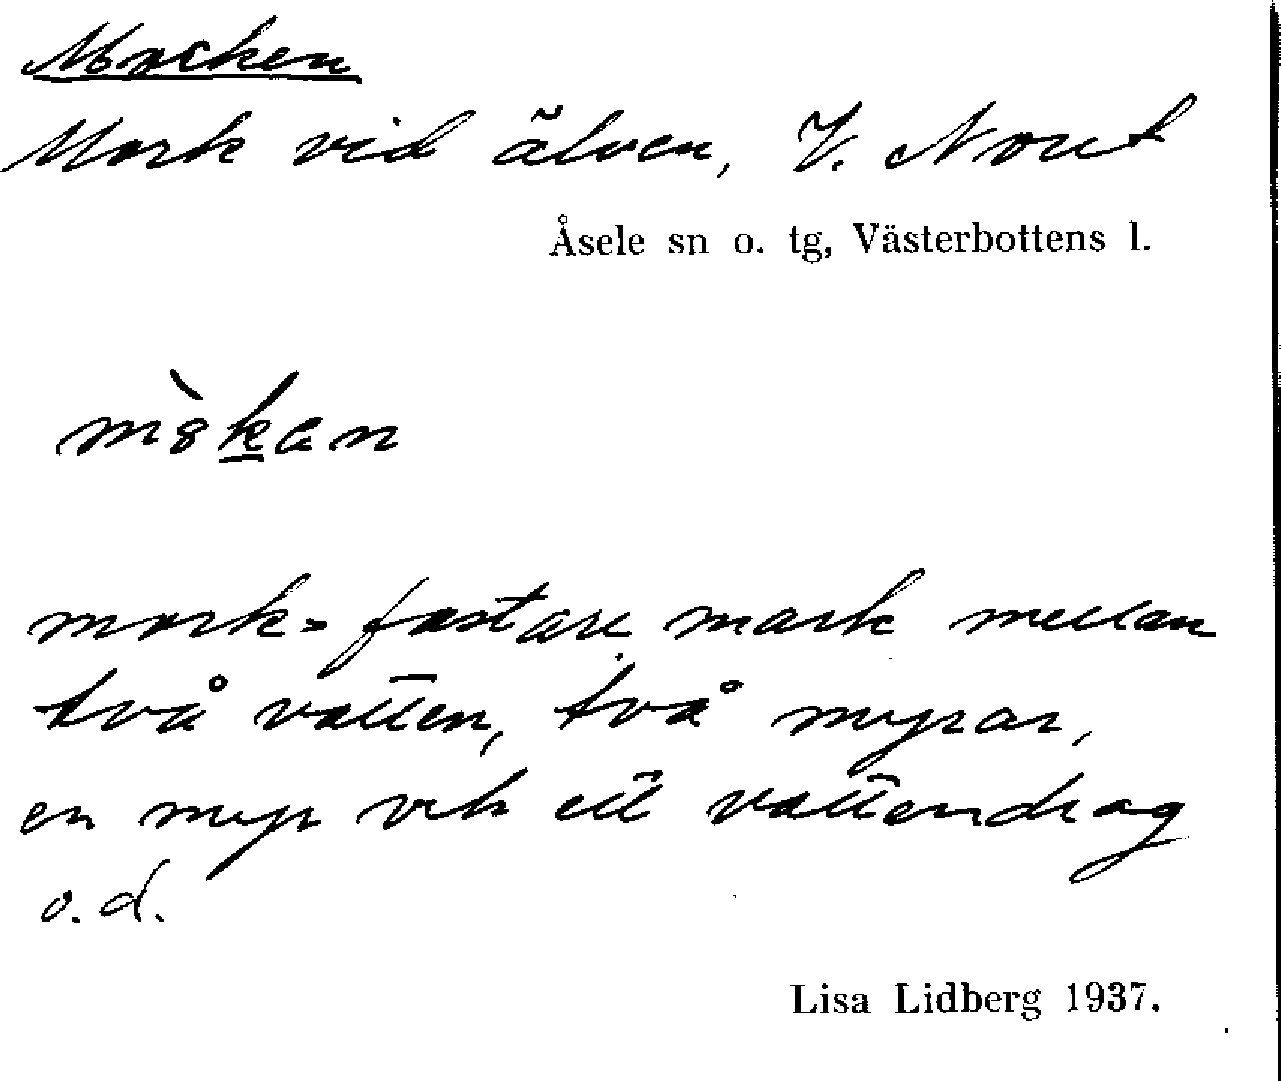 Mocken
Mork vid älven, V. Nout
Åsele sn o. tg, Västerbottens l.
mòkan
mork = fastare mark mellan
två vatten, två myrar,
en myr och ett vattendrag
o.d.
Lisa Lidberg 1937.